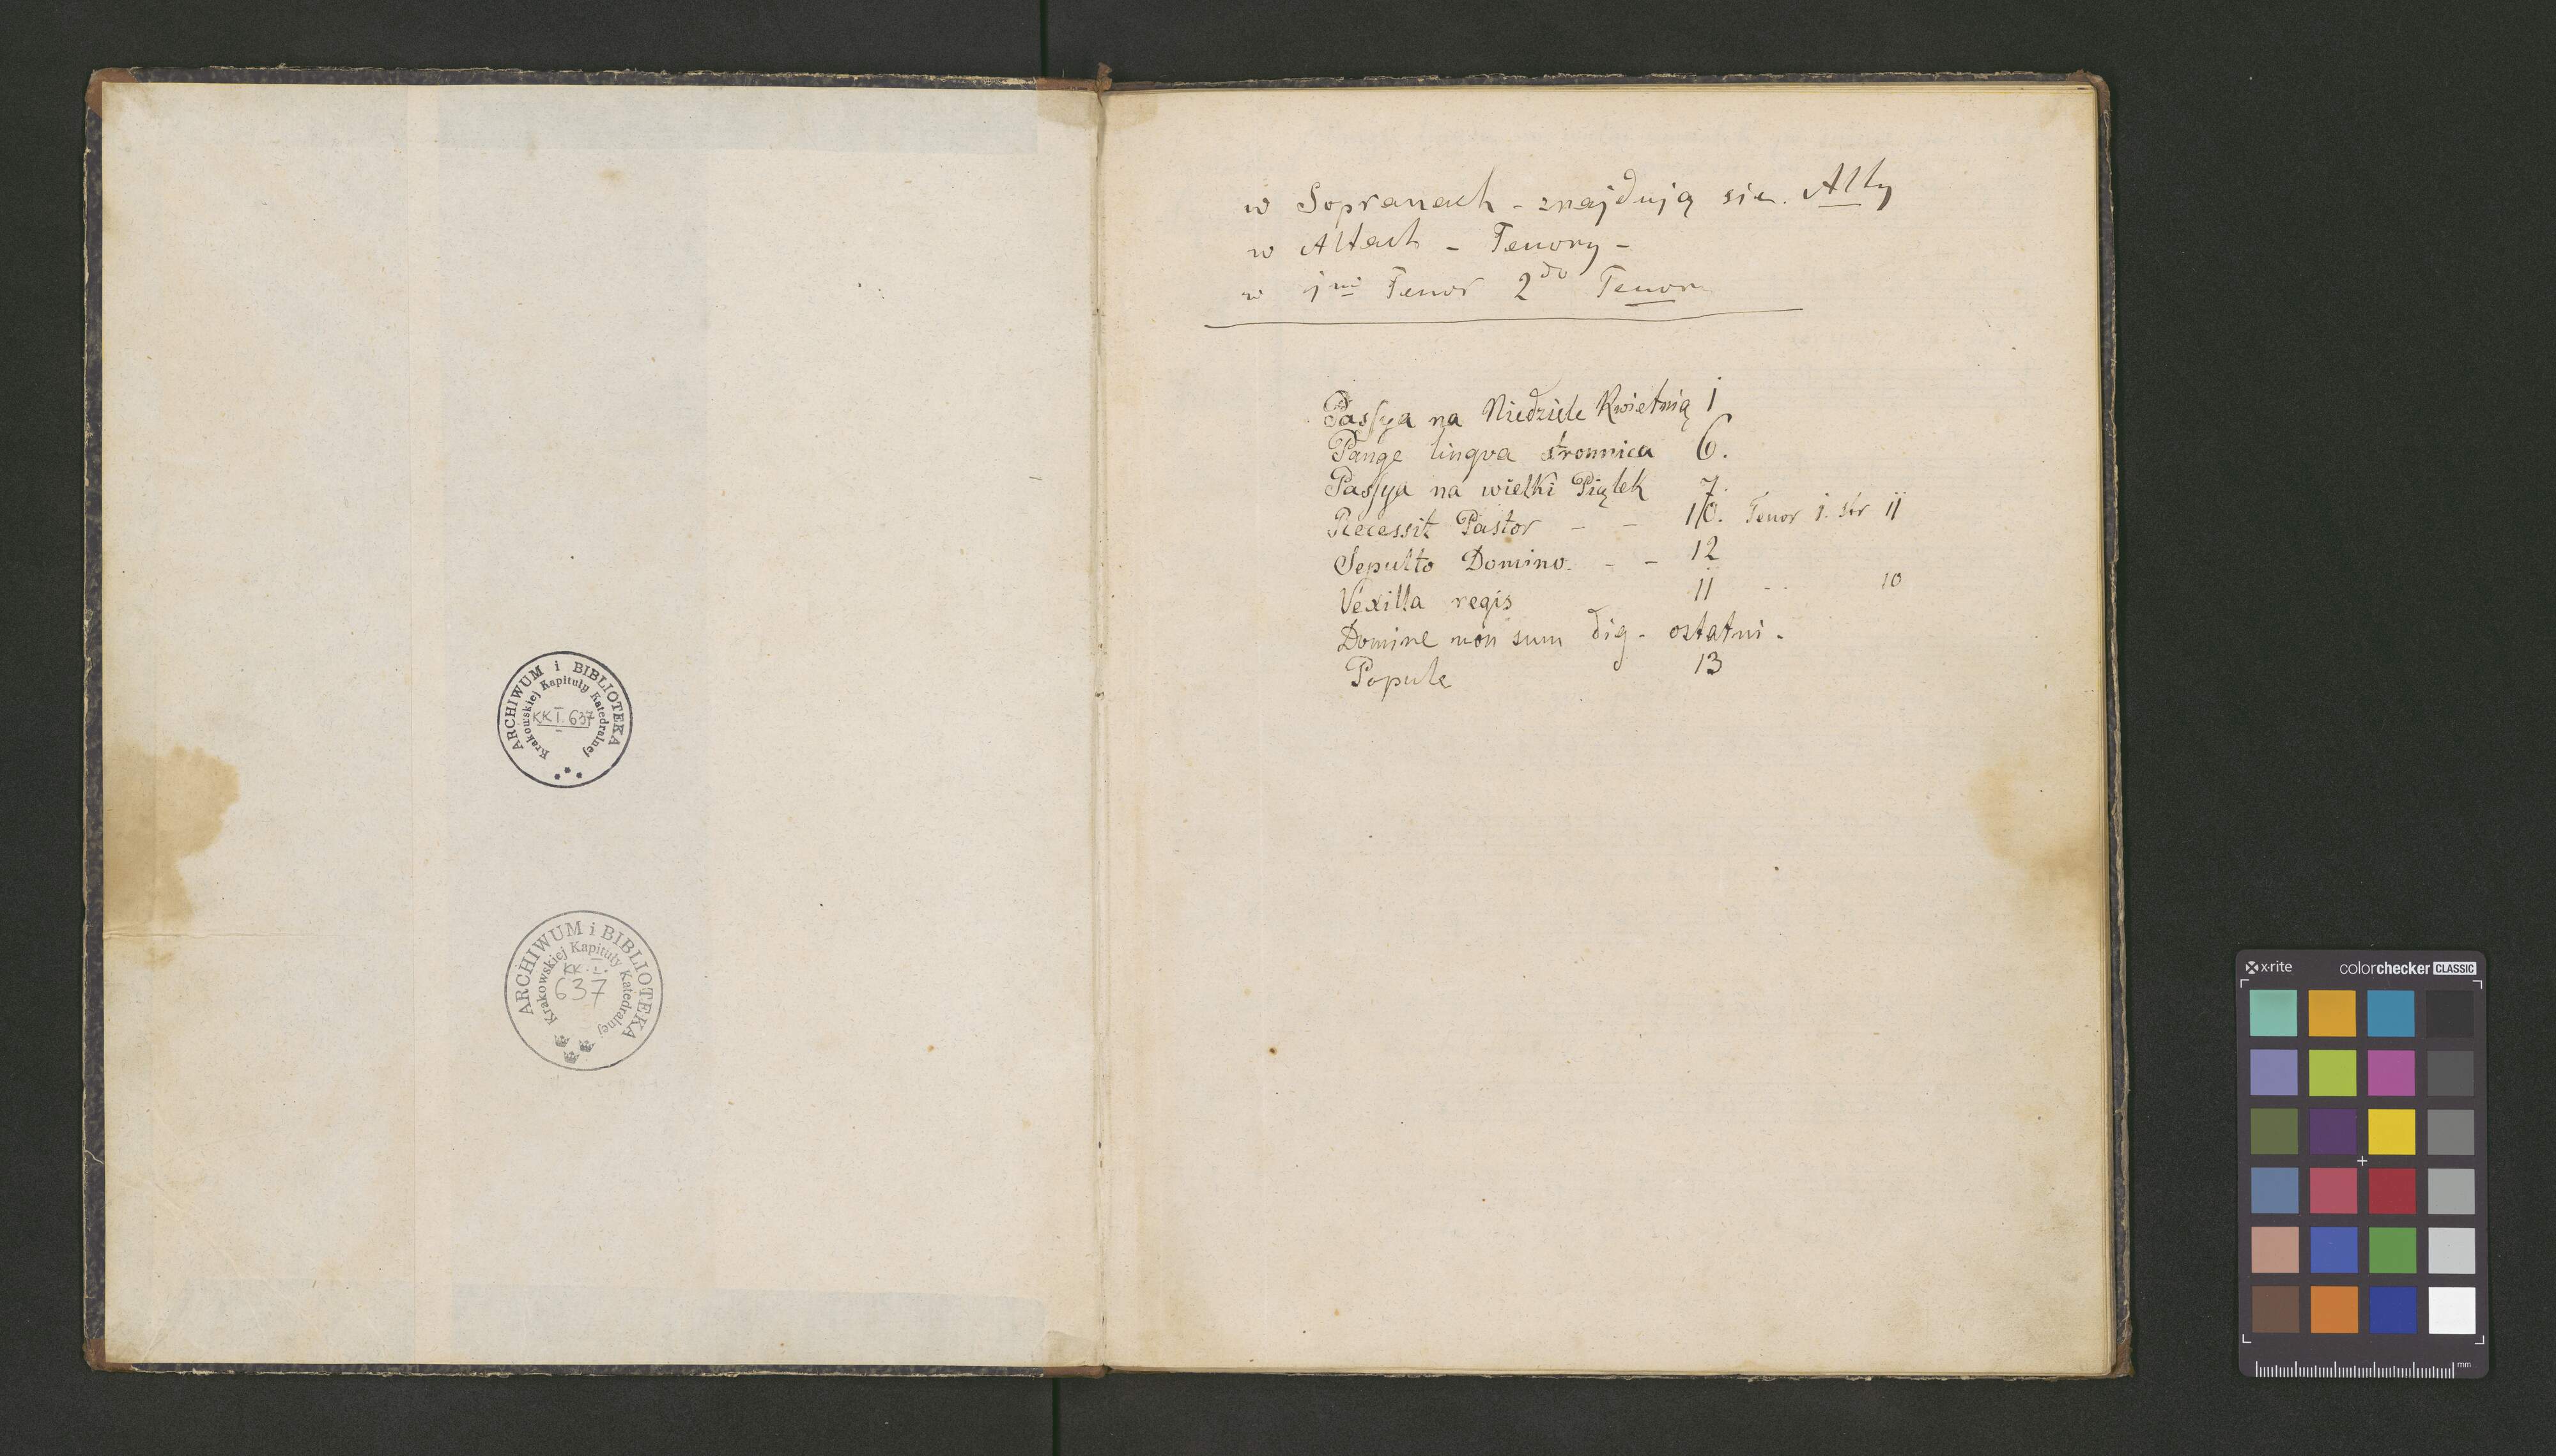 ARCHIWUM i BIBLIOTEKA
Krakowskiej Kapituły Katedralnej
KK I. 637
ARCHIWUM i BIBLIOTEKA
Krakowskiej Kapituły Katedralnej
KK. I.
637
w Sopranach - znajdują się. Alty
w Altach - Tenory -
w 1mi Tenor 2do Tenor
Passya na Niedziele Kwietnią 1
Pange lingva stronnica 6.
Passya na wielki Piątek 7.
Recessit Pastor - - 10. Tenor 1. str 11
Sepulto Domino. - - 12
Vexilla regis 11 - - 10
Domine non sum dig - ostatni -
Popule 13
x-rite
colorchecker CLASSIC
mm